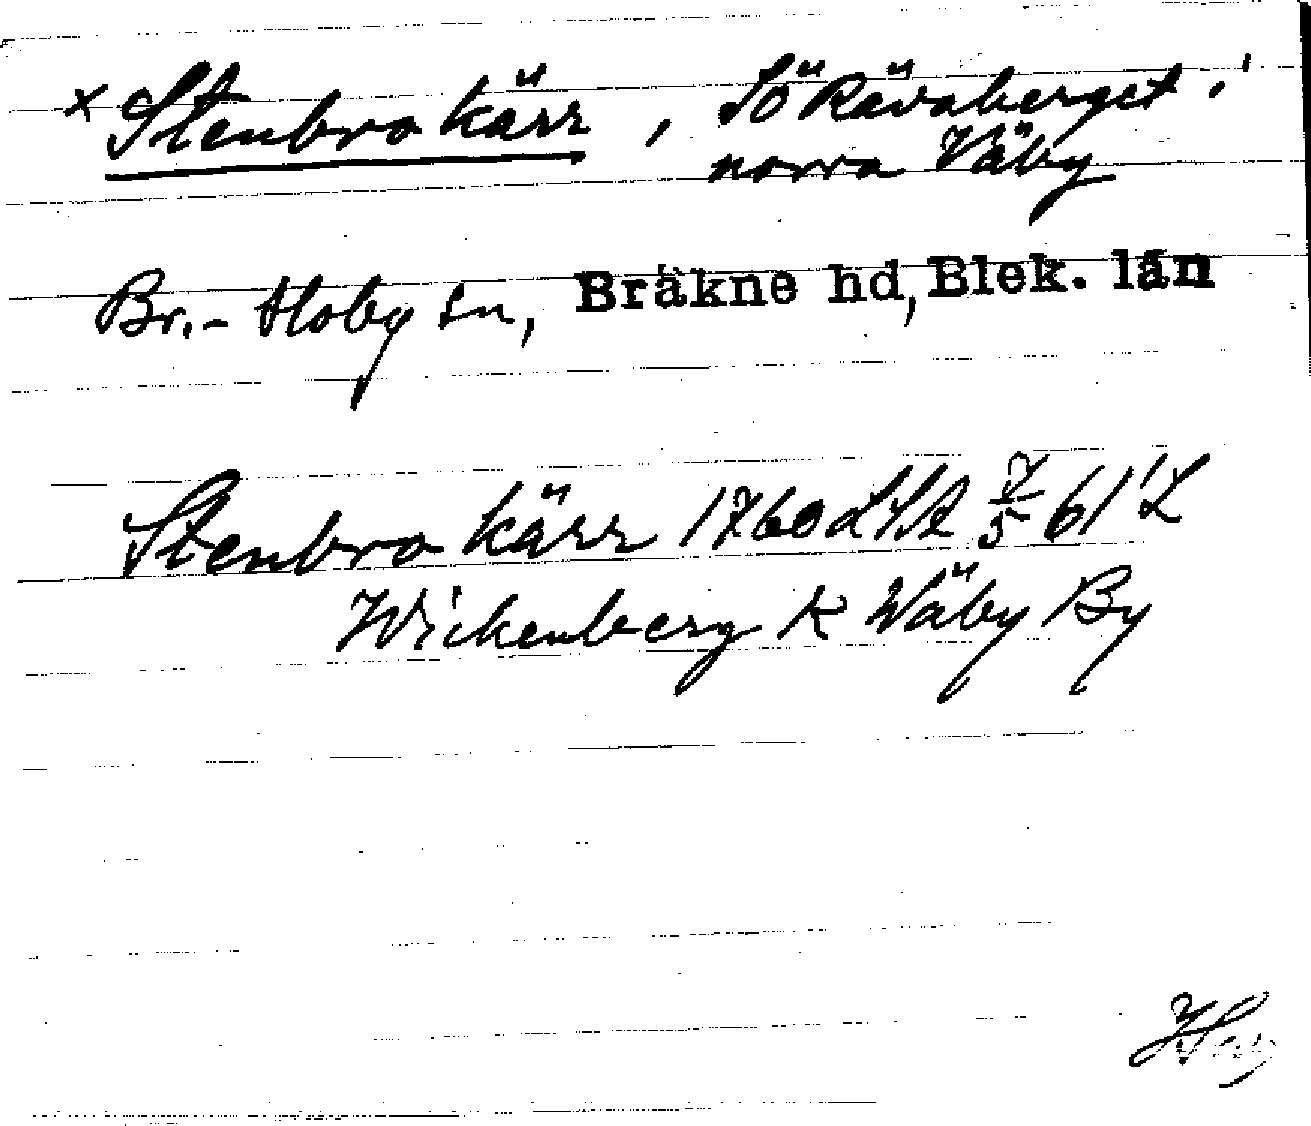 x Stenbro kärr, SÖ Rävaberget i
norra Väby
Br.-Hoby sn, Bräkne hd, Blek. län
Stenbro kärr 1760 LSA 7/5 61'L
Wickenberg K Wäby By